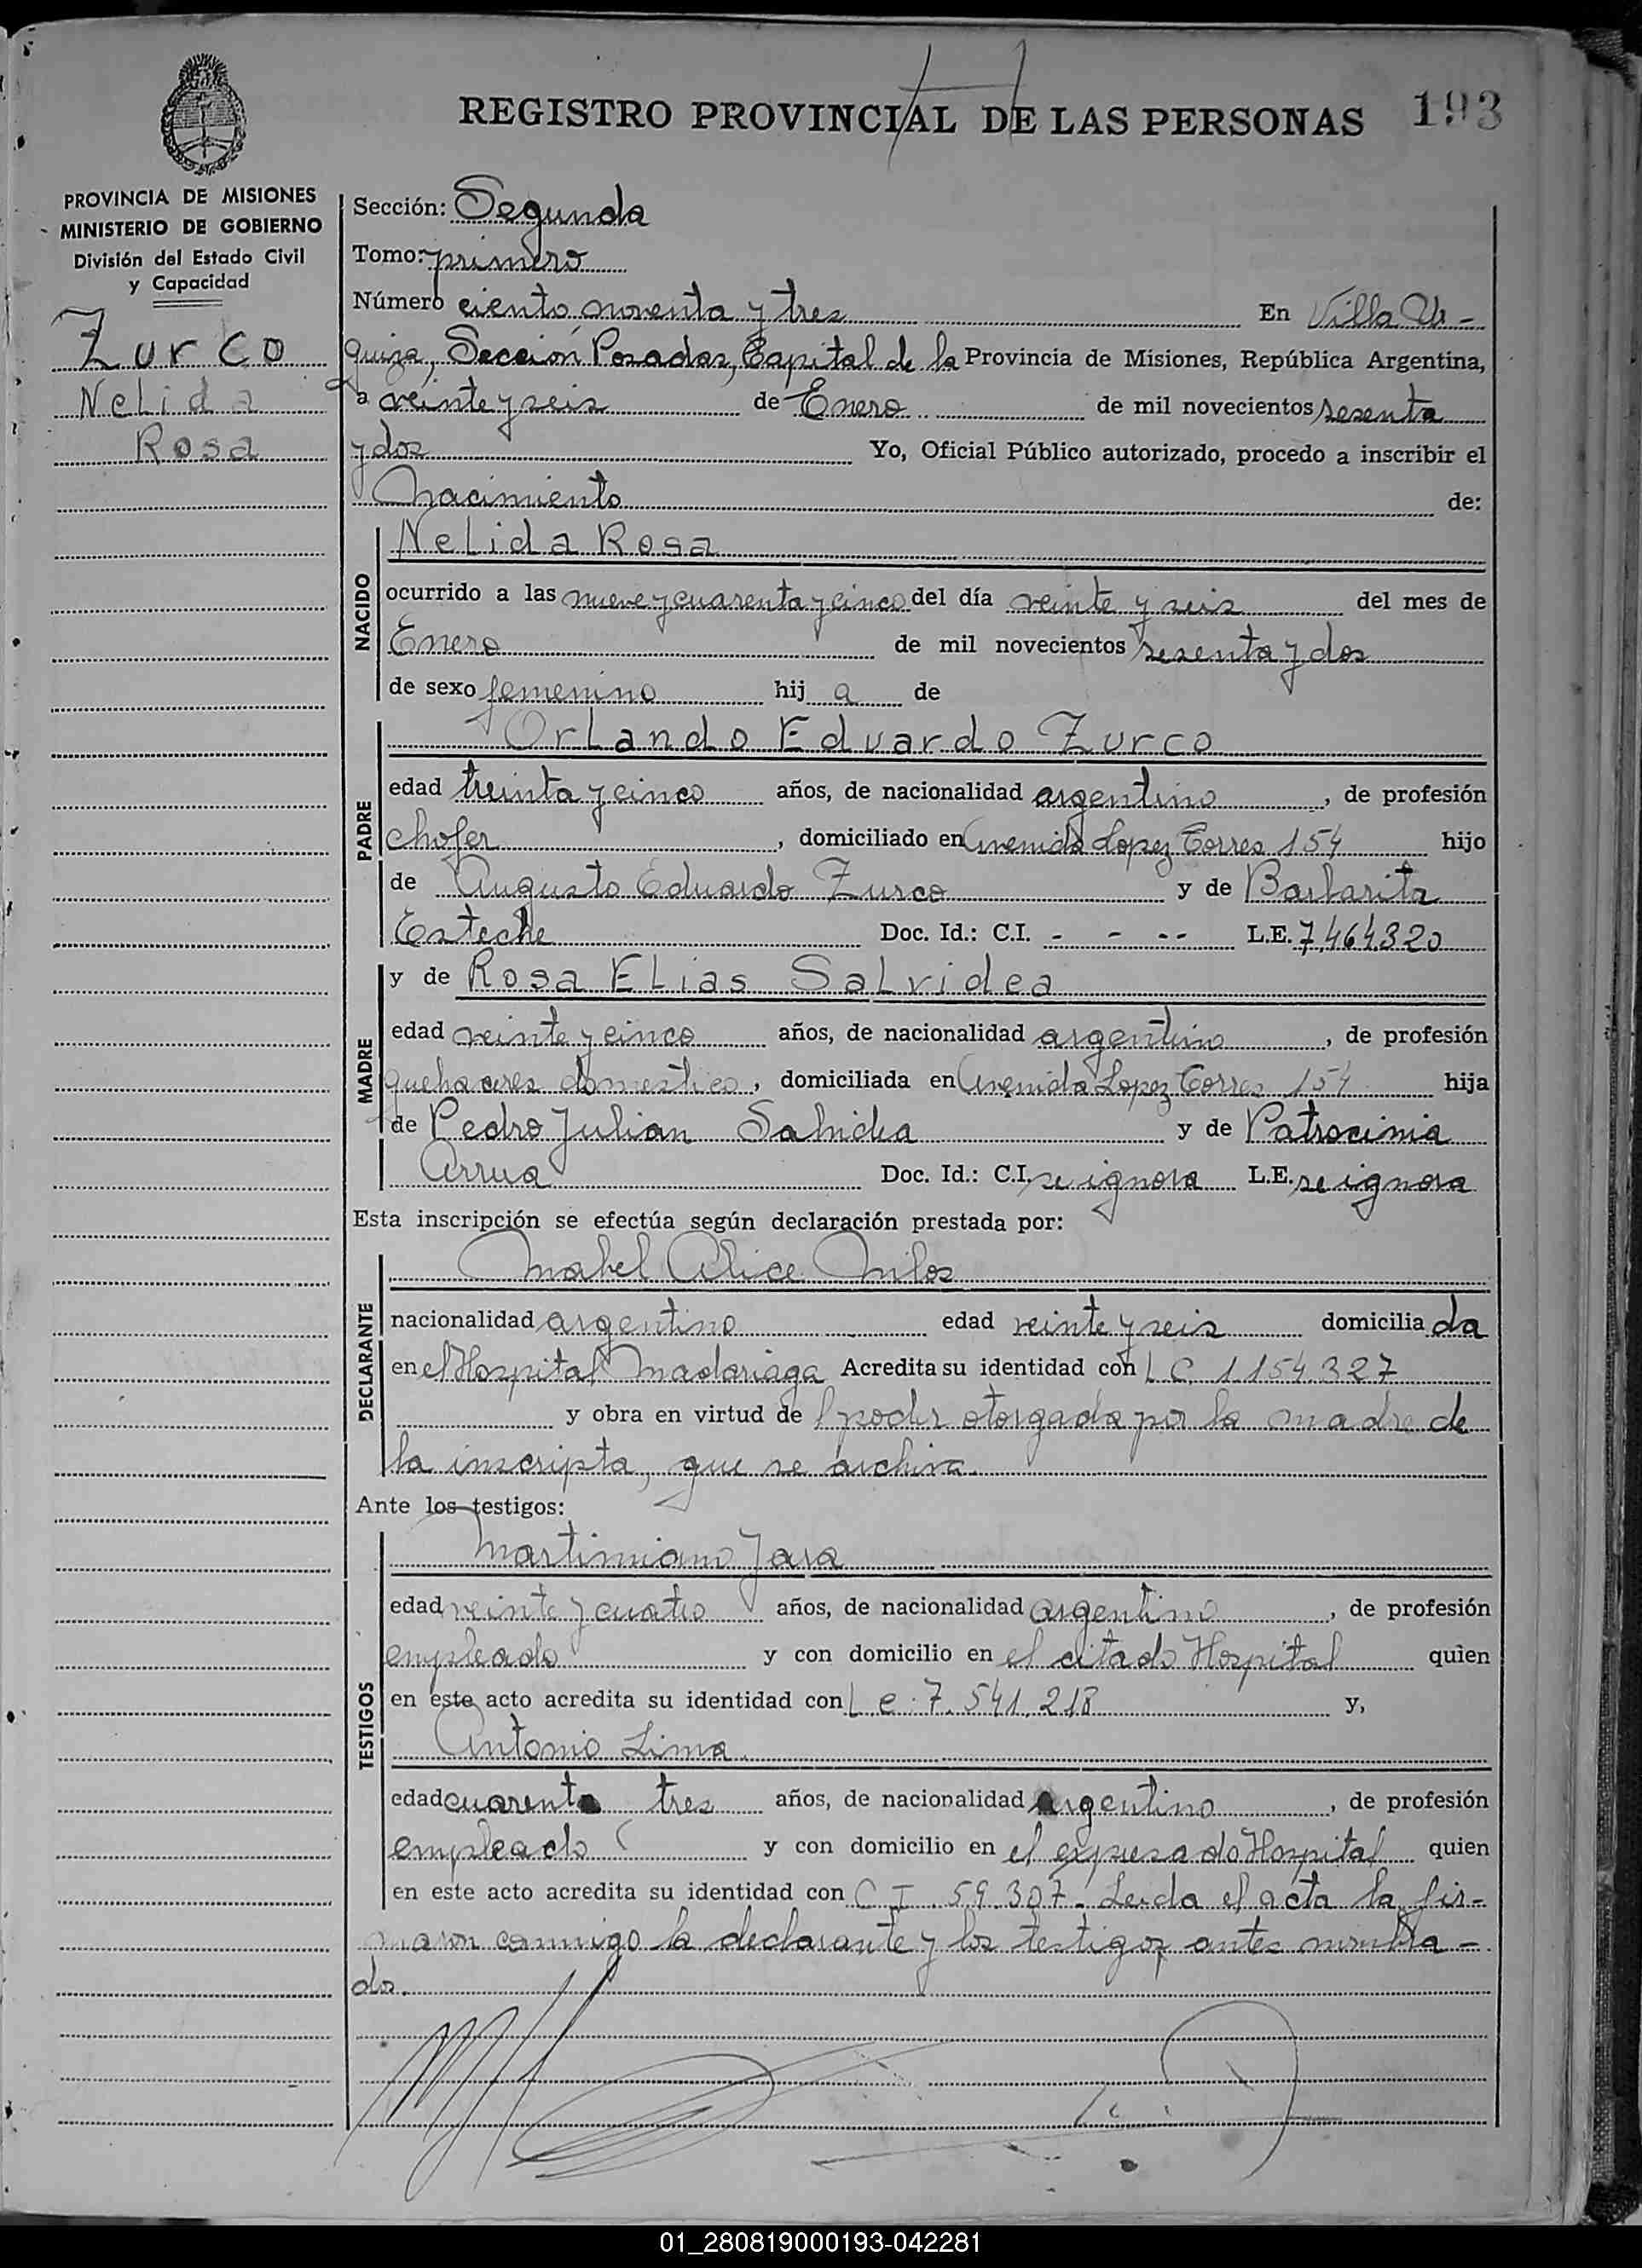 REGISTRO PROVINCIAL DE LAS PERSONAS 193
PROVINCIA DE MISIONES
MINISTERIO DE GOBIERNO
División del Estado Civil
y Capacidad
Zurco
Nelida
Rosa
Sección: Segunda
Tomo: primero
Número ciento noventa y tres En Villa Ur-
quiza, Sección Posadas, Capital de la Provincia de Misiones, República Argentina,
a veinte y seis de Enero de mil novecientos sesenta
y dos Yo, Oficial Público autorizado, procedo a inscribir el
Nacimiento de:
NACIDO
Nelida Rosa
ocurrido a las nueve y cuarenta y cinco del día veinte y seis del mes de
Enero de mil novecientos sesenta y dos
de sexo femenino hij a de
PADRE
Orlando Eduardo Zurco
edad treinta y cinco años, de nacionalidad argentino, de profesión
chofer, domiciliado en Avenida Lopez Torres 154 hijo
de Augusto Eduardo Zurco y de Barbarita
Esteche Doc. Id.: C.I. - - -- L.E. 7,464.320
MADRE
y de Rosa Elias Salvidea
edad veinte y cinco años, de nacionalidad argentino, de profesión
quehaceres domestico, domiciliada en Avenida Lopez Torres 154 hija
de Pedro Julian Salvidea y de Patrocinia
Arrua Doc. Id.: C.I. se ignora L.E. se ignora
Esta inscripción se efectúa según declaración prestada por:
DECLARANTE
Mabel Alice Milos
nacionalidad argentino edad veinte y seis domicilia da
en el Hospital Madariaga Acredita su identidad con L C. 1.154.327
y obra en virtud de l poder otorgada por la madre de
la inscripta, que se archiva.
Ante los testigos:
TESTIGOS
Martimiano Jara
edad veinte y cuatro años, de nacionalidad argentino, de profesión
empleado y con domicilio en el citado Hospital quien
en este acto acredita su identidad con L e. 7.541.218 y,
Antonio Lima
edad cuarenta tres años, de nacionalidad argentino, de profesión
empleado y con domicilio en el expresado Hospital quien
en este acto acredita su identidad con C I. 59.307. Leida el acta la fir-
maron conmigo la declarante y los testigos antes nombra-
dos.
01_280819000193-042281